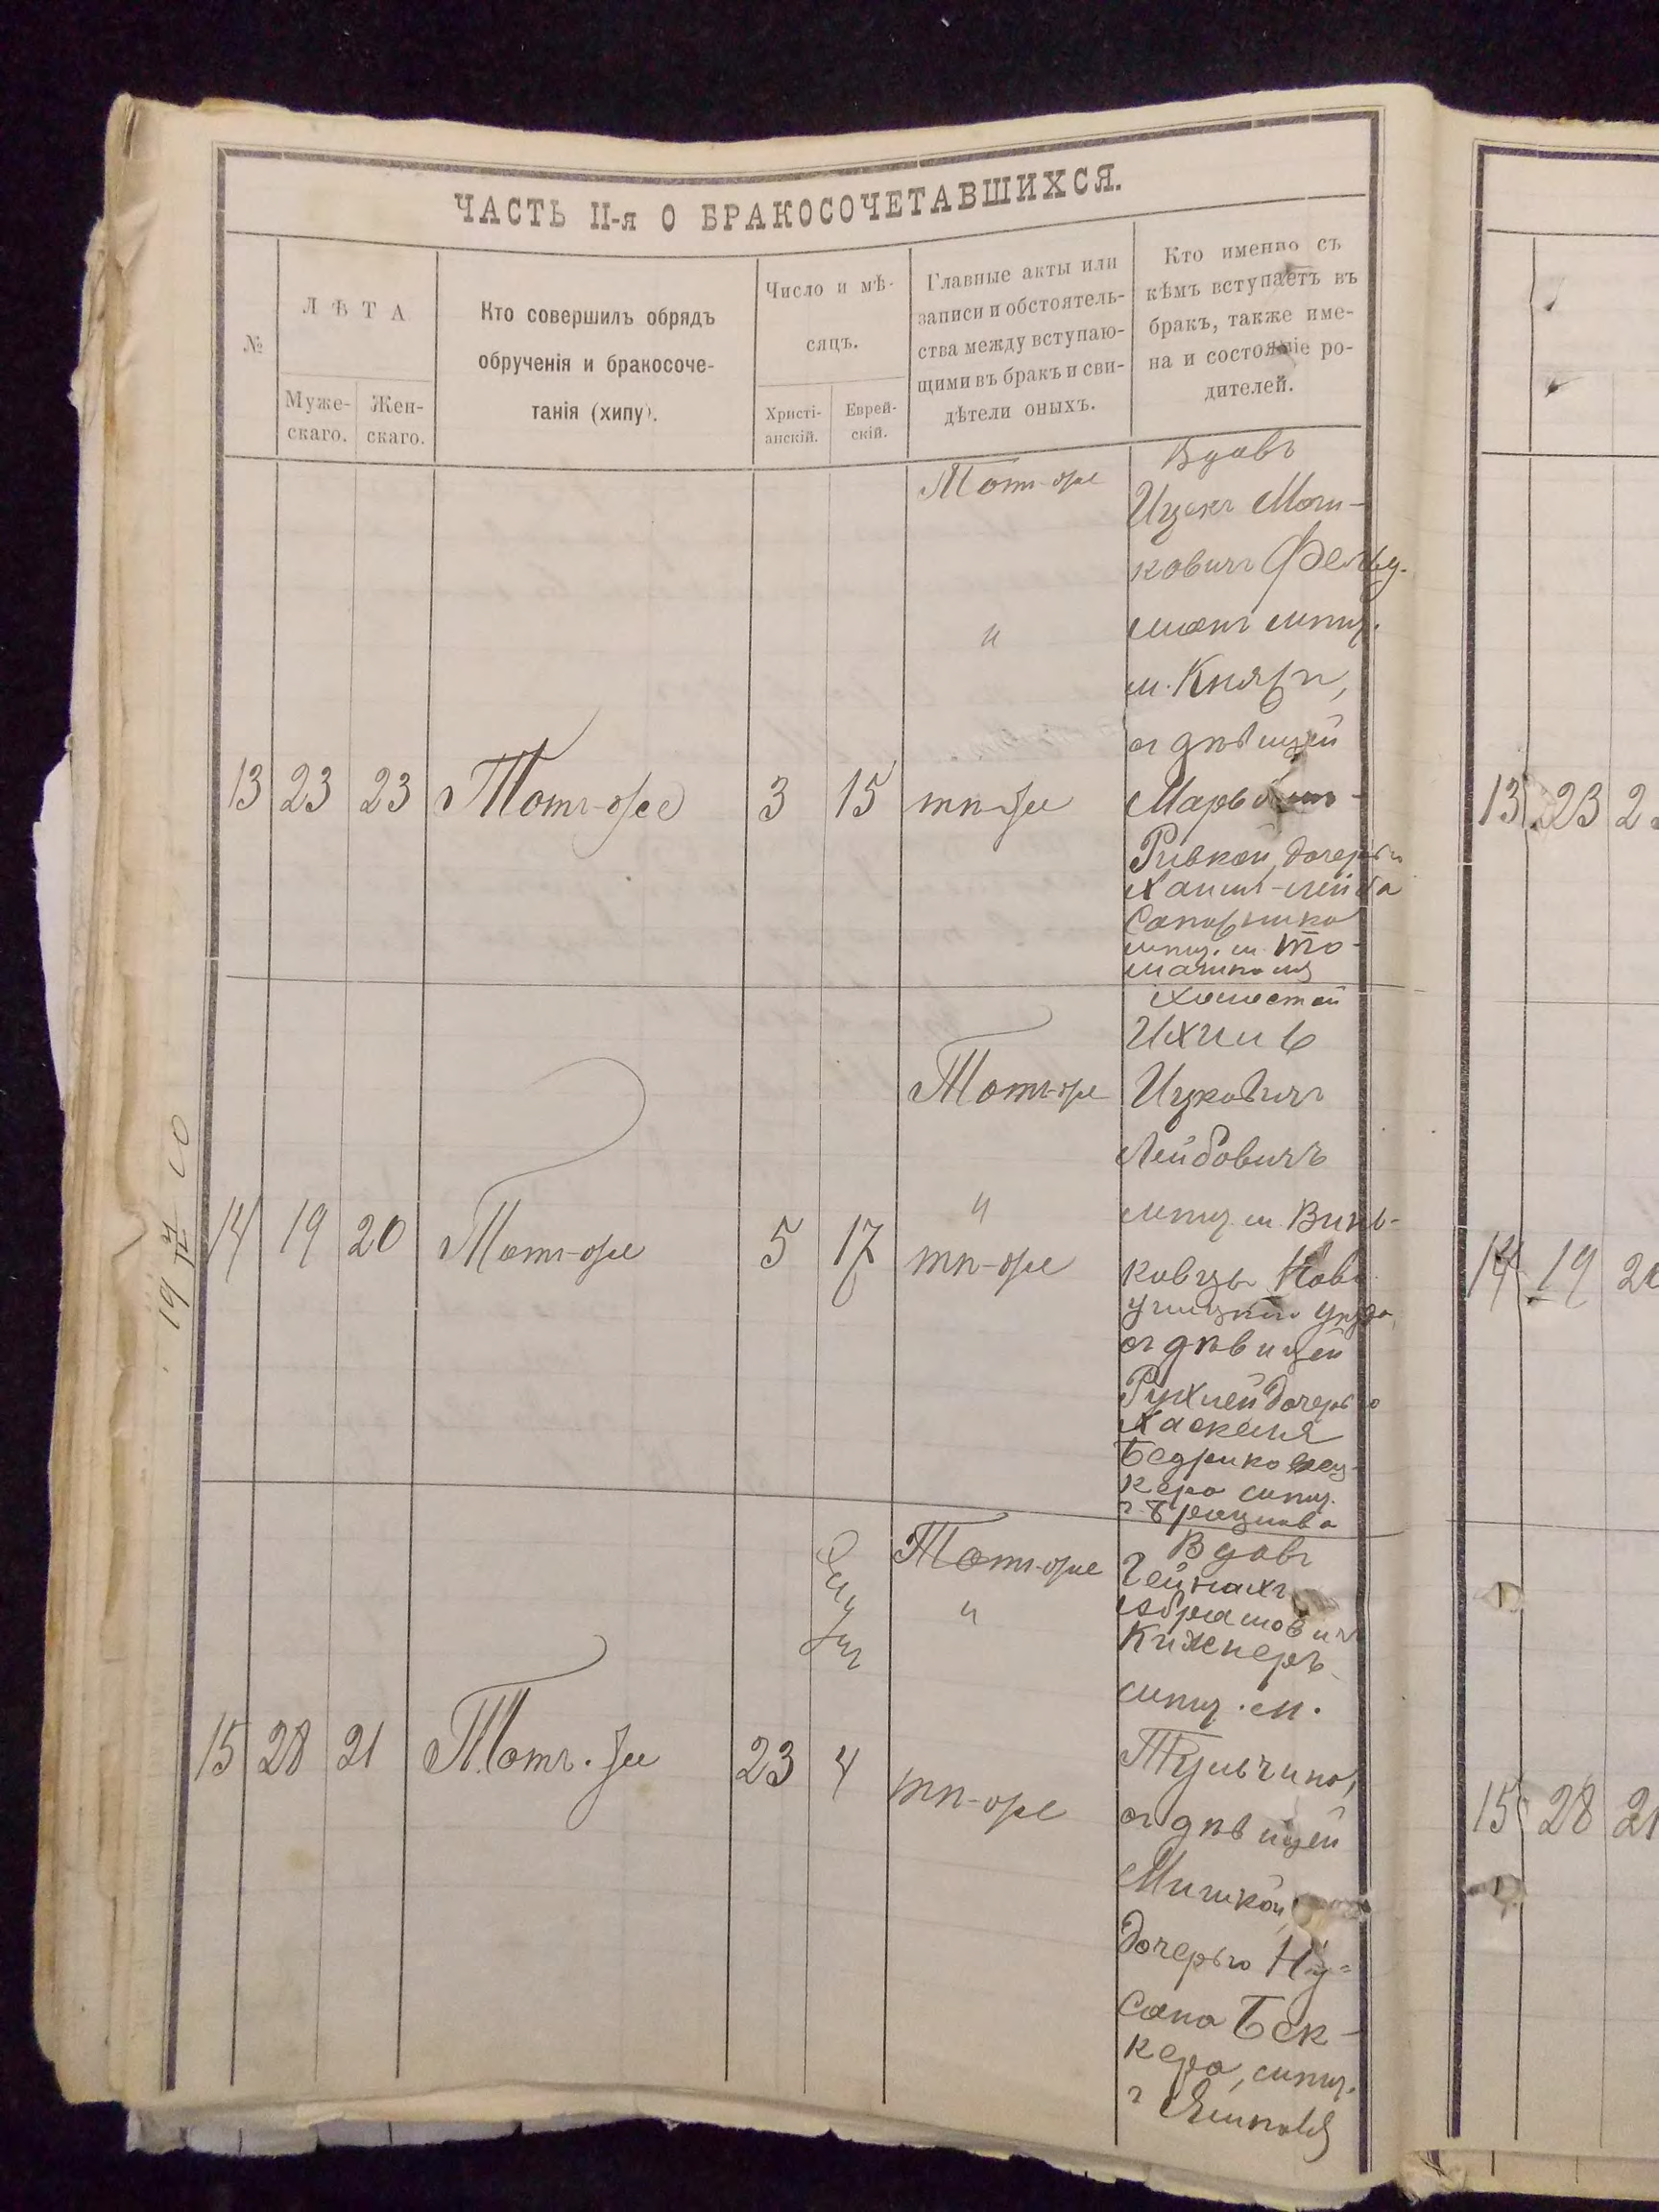 ЧАСТЬ II-я О БРАКОСОЧЕТАВШИХСЯ.
№
ЛѢТА
Муже-
скаго.
Жен-
скаго.
Кто совершилъ обрядъ
обрученія и бракосоче-
танія (хипу).
Число и мѣ-
сяцъ.
Христі-
анскій.
Еврей-
скій.
Главные акты или
записи и обстоятель-
ства между вступаю-
щими въ бракъ и сви-
дѣтели оныхъ.
Кто именно съ
кѣмъ вступаетъ въ
бракъ, также име-
на и состояніе ро-
дителей.
13 23 23 Тотъ-же 3 15
Тотъ-же
и
тѣ-же
Вдовъ
Ицекъ Мош-
ковичъ Фельд-
манъ мѣщ.
м. Княжи,
съ дѣвицей
Ривкой, дочерью
Хаимъ-Лейба
мѣщ. м. То-
машполя
14 19 20 Тотъ-же 5 17
Тотъ-же
и
тѣ-же
Холостой
Ихиль
Ицковичъ
Лейбовичъ
мѣщ. м. Винь-
ковцы Ново
ушицкаго уѣзда,
съ дѣвицей
Рухлей дочерью
Хаскеля
кера мѣщ.
г. Брацлава
15 28 21 Тотъ-же 23 4
Тотъ-же
и
тѣ-же
Вдовъ
Гейнахъ
Абрамовичъ
Кижнеръ
мѣщ. м.
Тульчина,
съ дѣвицей
дочерью Ну-
сана Бек-
кера, мѣщ.
г. Ямполя
13 23 2
14 19 20
15 28 21